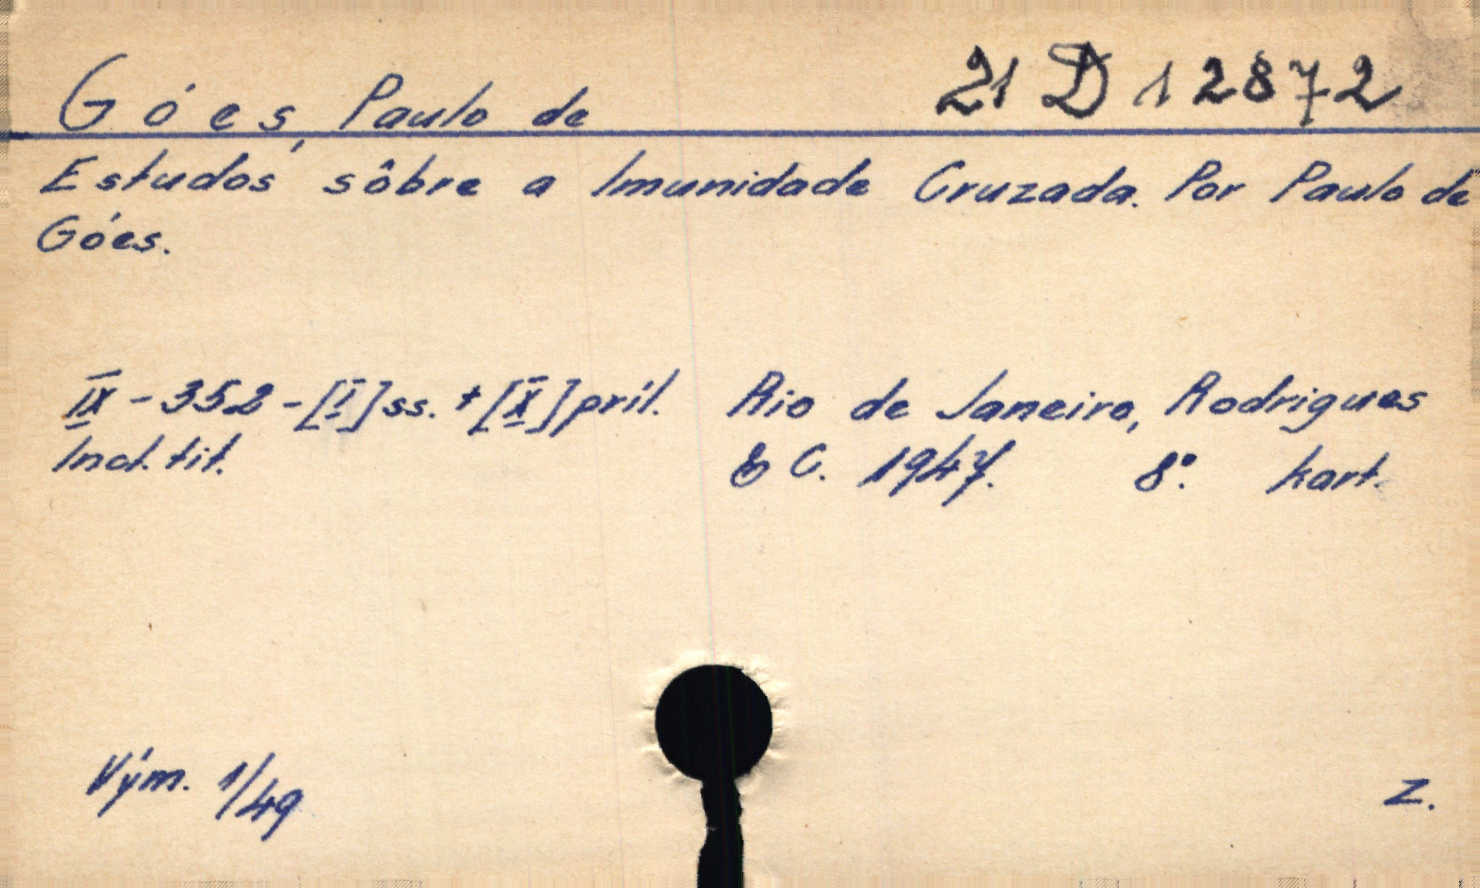 Góes, Paulo de 21 D 12872
Estudos sôbre a Imunidade Cruzada. Por Paulo de
Góes.
IX - 352 - [I] ss. + [X] príl. Rio de Janeiro, Rodrigues
Incl. tit. & C. 1947. 8°. kart.
Vým. 1/49 Z.